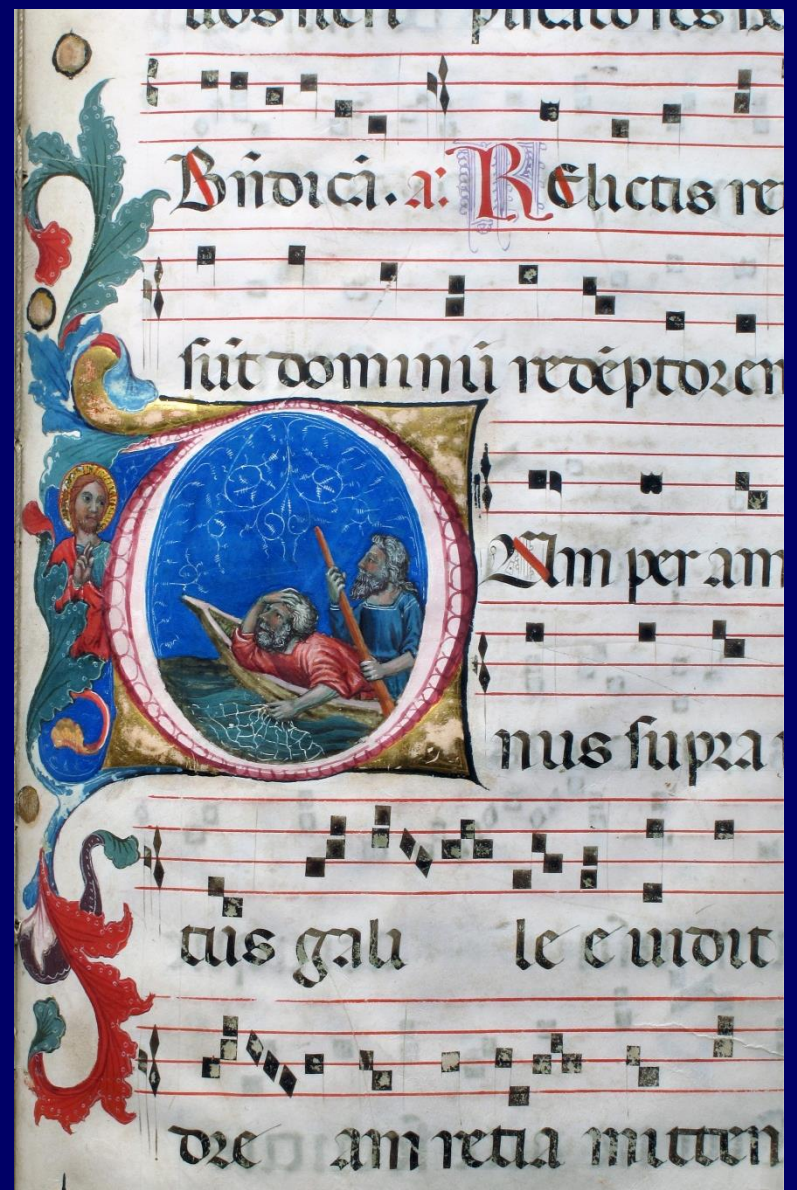 uos fieri piscatores
Bñdicā. a: RElictis re
sūt dominū redēptorem
DUm per am
nus supra
tus gali le e uidit
dre am retia mitten